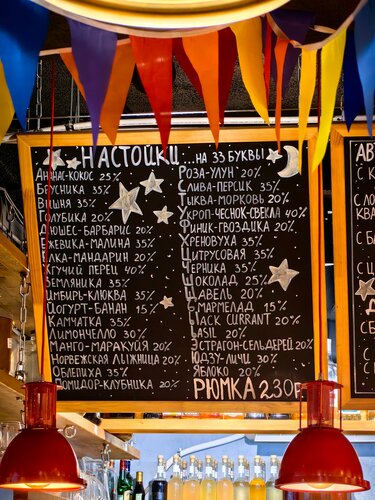 НАСТОЙКИ ...НА 33 БУКВЫ
АНАНАС-КОКОС 25%
БРУСНИКА 35%
ВИШНЯ 35%
ГОЛУБИКА 20%
ДЮШЕС-БАРБАРИС 20%
ЕЖЕВИКА-МАЛИНА 35%
ЁЛКА-МАНДАРИН 20%
ЖГУЧИЙ ПЕРЕЦ 40%
ЗЕМЛЯНИКА 35%
ИМБИРЬ-КЛЮКВА 35%
ЙОГУРТ-БАНАН 15%
КАМЧАТКА 35%
ЛИМОНЧЕЛЛО 30%
МАНГО-МАРАКУЙЯ 20%
НОРВЕЖСКАЯ ЛЫЖНИЦА 20%
ОБЛЕПИХА 35%
ПОМИДОР-КЛУБНИКА 20%
РОЗА-УЛУН 20%
СЛИВА-ПЕРСИК 35%
ТЫКВА-МОРКОВЬ 20%
УКРОП-ЧЕСНОК-СВЕКЛА 40%
ФИНИК-ГВОЗДИКА 20%
ХРЕНОВУХА 35%
ЦИТРУСОВАЯ 35%
ЧЕРНИКА 35%
ШОКОЛАД 25%
ЩАВЕЛЬ 20%
ЪМАРМЕЛАД 15%
ЫLACK CURRANT 20%
ЬASIL 20%
ЭСТРАГОН-СЕЛЬДЕРЕЙ 20%
ЮДЗУ-ЛИЧИ 30%
ЯБЛОКО 20%
РЮМКА 230₽